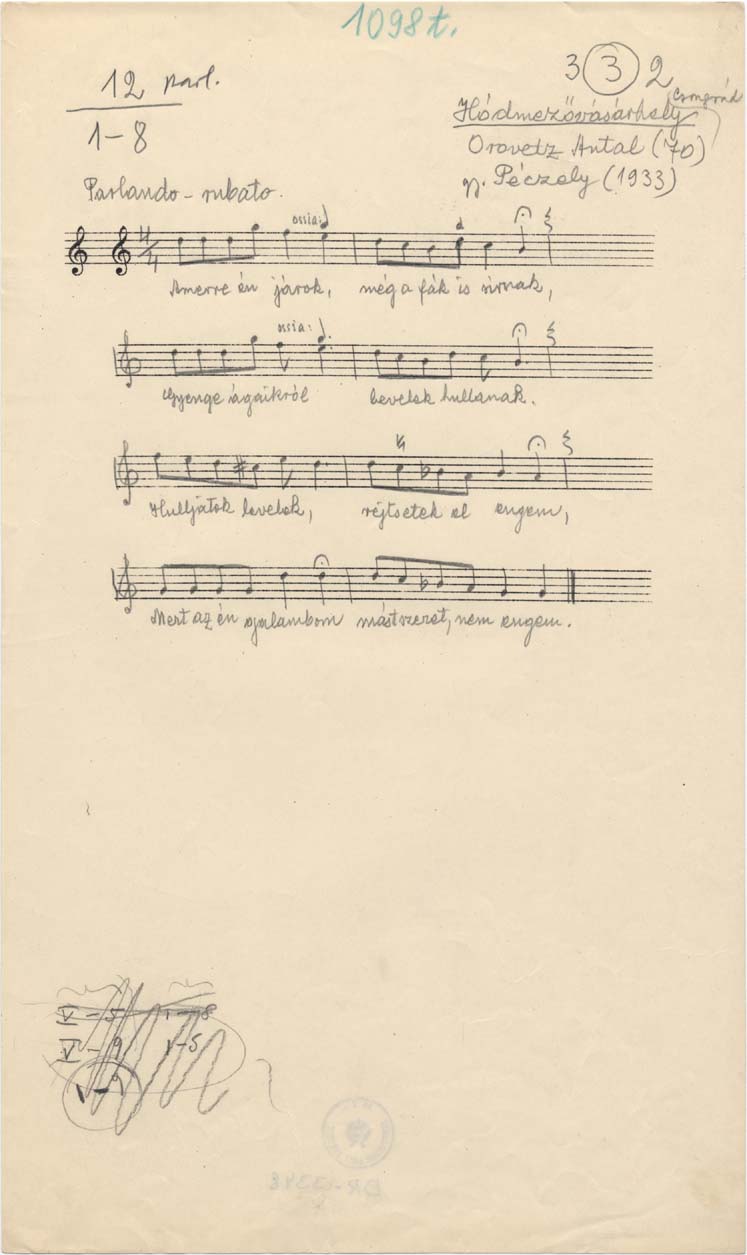 1098t.
12 parl.
1-8
3 3 2
Csongrád
Hódmezővásárhely
Oravetz Antal (70)
gy. Péczely (1933)
Parlando-rubato.
ossia:
4/4
Amerre én járok, még a fák is sirnak,
ossia:
Gyenge ágaikról levelek hullanak.
Hulljátok levelek, rejtsetek el engem,
Mert az én galambom mást szeret, nem engem.
IV - 5 1-8
VI - 9 1-5